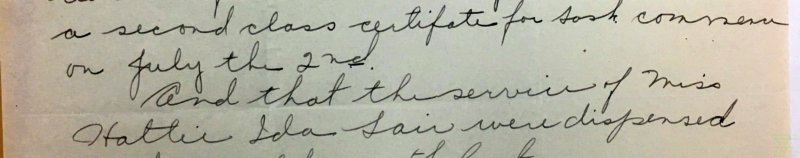 a second class certifate for Sask commence
on July the 2nd.
And that the service of Miss
Hattie Ida Lair were dispensed